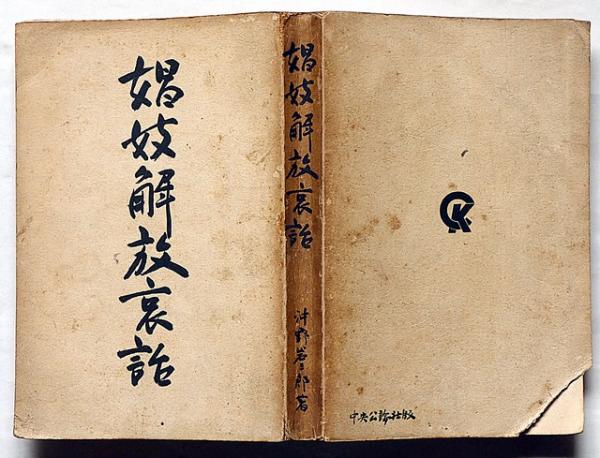 娼妓解放哀話
娼妓解放哀話
沖野岩三郎著
CK
中央公論社版